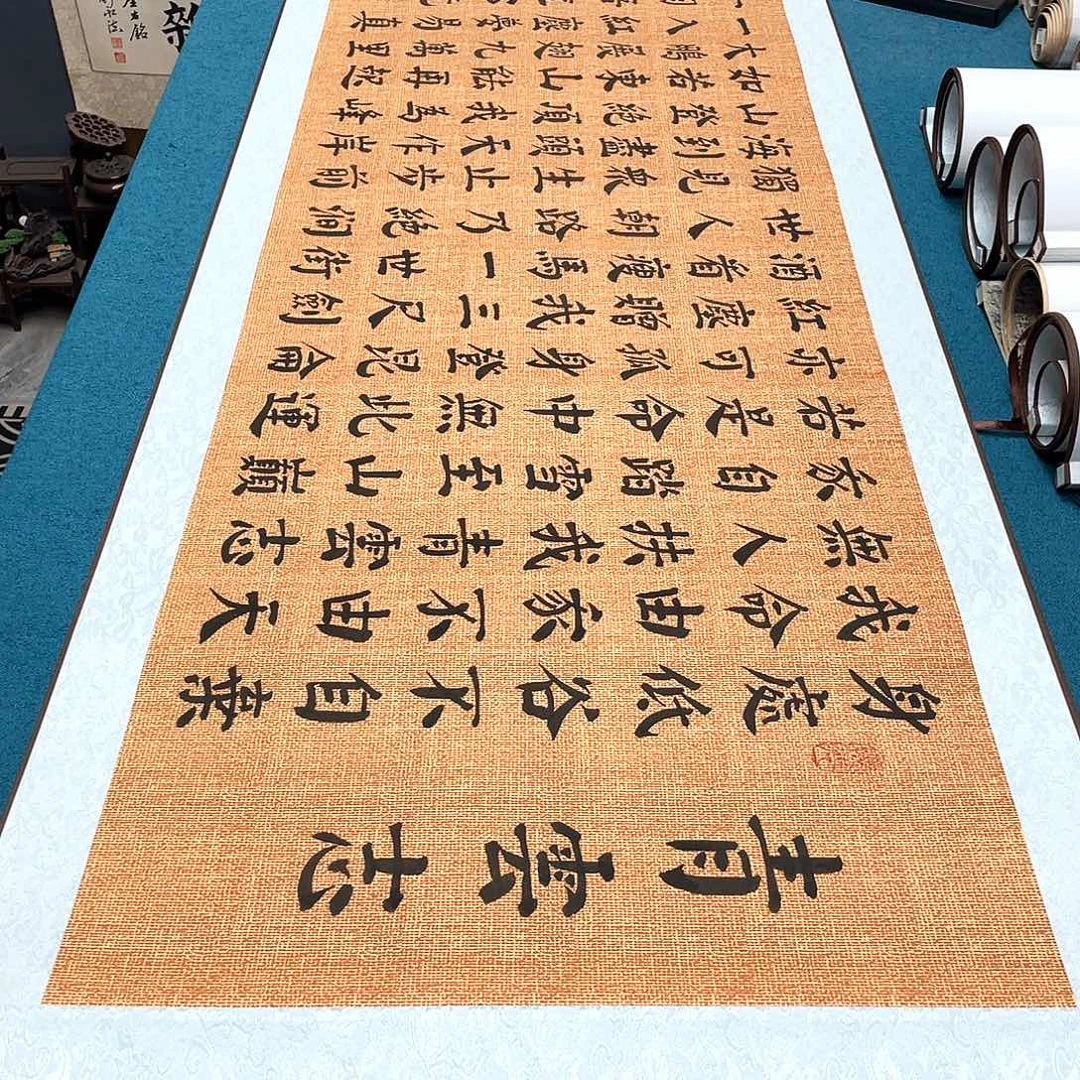 青雲志
身處低谷不自棄
我命由家不由天
無人扶我青雲志
家自踏雪至山巔
若是命中無此運
亦可孤身登昆侖
紅塵贈我三尺劍
酒着瘦馬一世街
世人朝路乃絕涧
獨見眾生止步前
海到盡頭天作岸
山登絕頂我為峰
如若東山能再起
大鵬展翅九萬里
一入紅塵夢易真